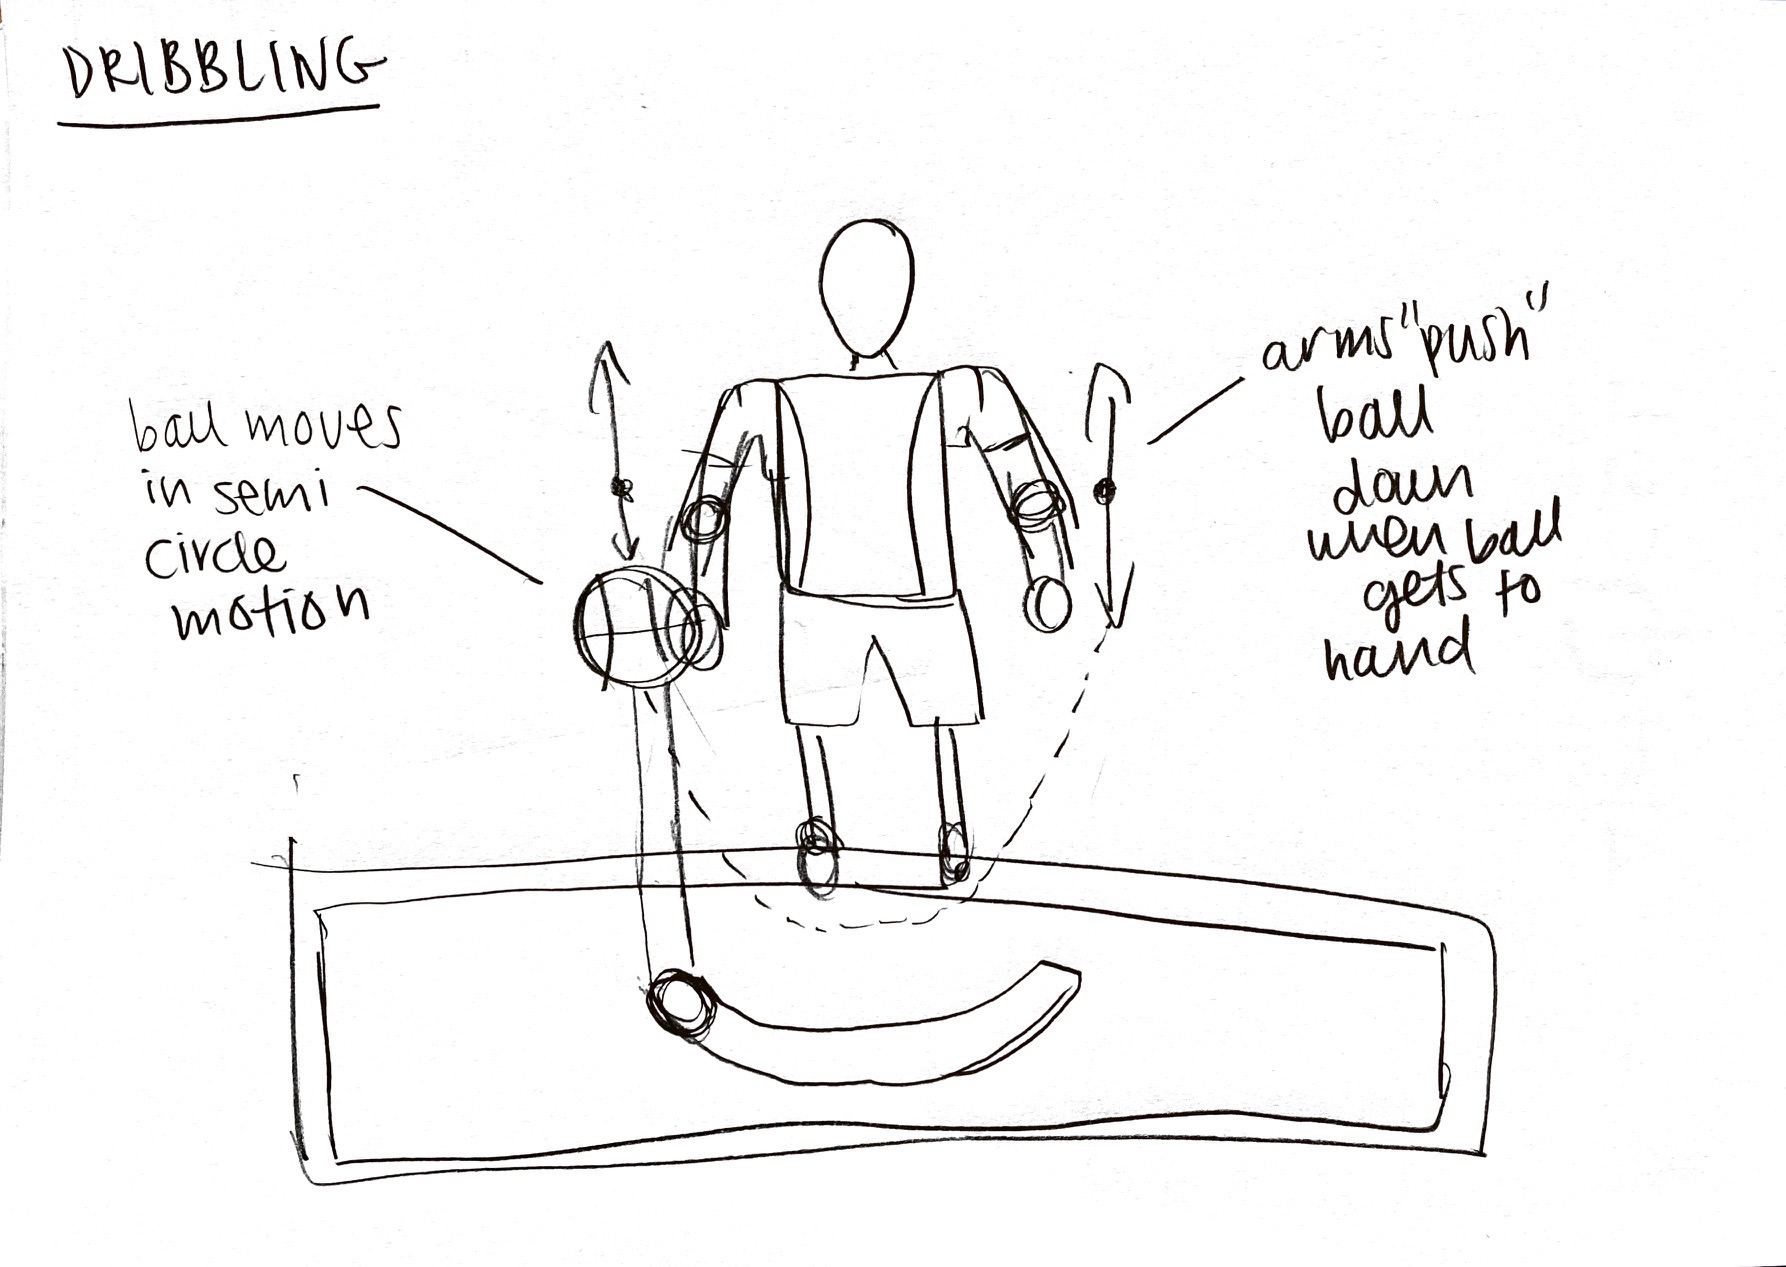 DRIBBLING
ball moves
in semi
circle
motion
arms "push"
ball
down
when ball
gets to
hand